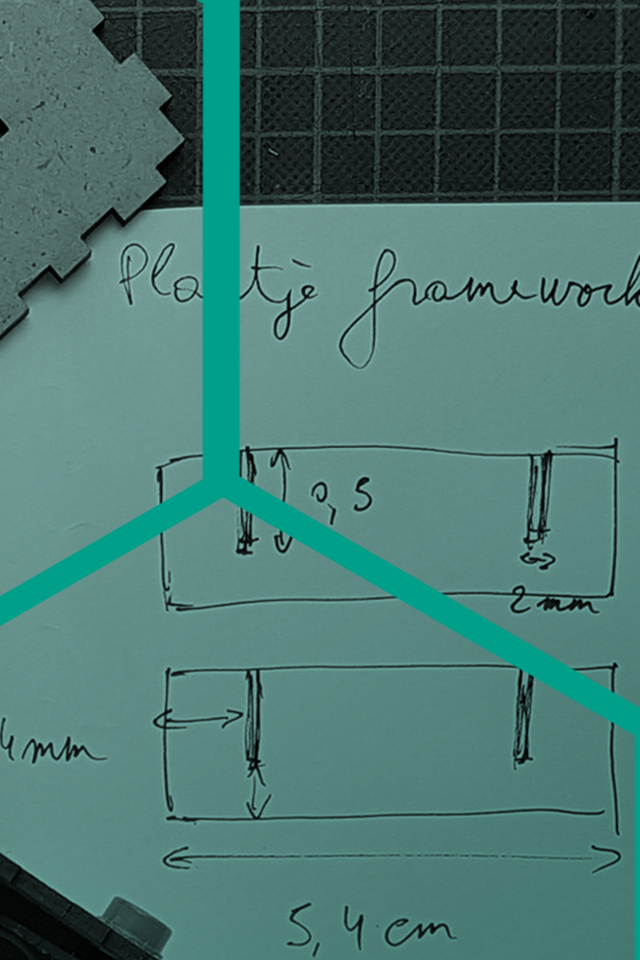 Plaatje framework
0,5
2 mm
4mm
5,4 cm